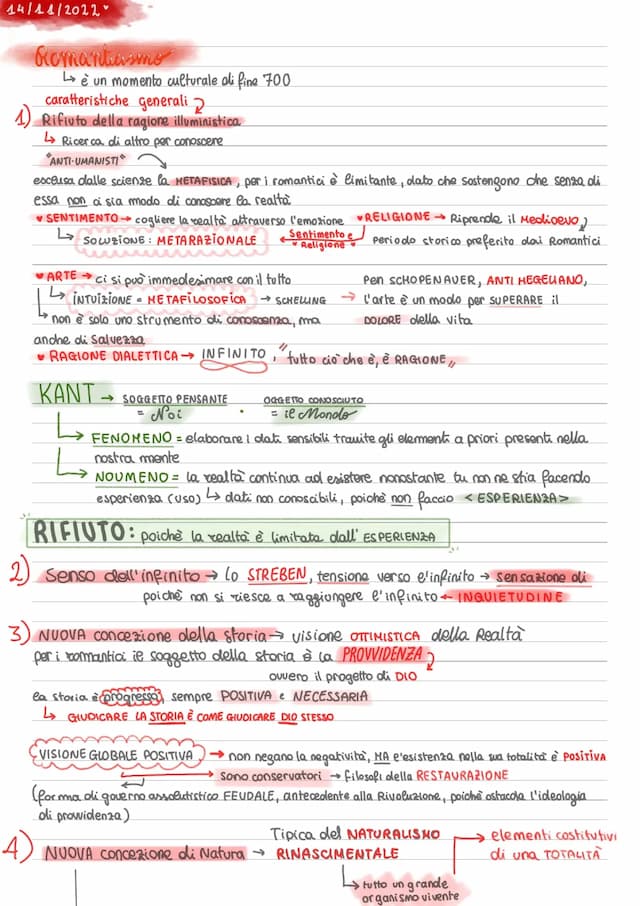 14/11/2022
Romanticismo
↳ è un momento culturale di fine 700
caratteristiche generali
1) Rifiuto della ragione illuministica
↳ Ricerca di altro per conoscere
"ANTI-UMANISTI"
esclusa dalle scienze la METAFISICA, per i romantici è limitante, dato che sostengono che senza di
essa non ci sia modo di conoscere la realtà
♥ SENTIMENTO → cogliere la realtà attraverso l'emozione ♥ RELIGIONE → Riprende il Medioevo,
↳ SOLUZIONE: METARAZIONALE ← Sentimento e Religione periodo storico preferito dai Romantici
♥ ARTE → ci si può immedesimare con il tutto Per SCHOPENAUER, ANTI HEGELIANO,
↳ INTUIZIONE = METAFILOSOFICA → SCHELLING → l'arte è un modo per SUPERARE il
↳ non è solo uno strumento di conoscenza, ma DOLORE della vita
anche di Salvezza
♥ RAGIONE DIALETTICA → INFINITO, "tutto ciò che è, è RAGIONE"
KANT → SOGGETTO PENSANTE • OGGETTO CONOSCIUTO
= Noi = il Mondo
↳ FENOMENO = elaborare i dati sensibili tramite gli elementi a priori presenti nella
nostra mente
↳ NOUMENO = la realtà continua ad esistere nonostante tu non ne stia facendo
esperienza (uso) ↳ dati non conoscibili, poichè non faccio <ESPERIENZA>
RIFIUTO: poichè la realtà è limitata dall'ESPERIENZA
2) Senso dell'infinito → lo STREBEN, tensione verso l'infinito → sensazione di
poichè non si riesce a raggiungere l'infinito ← INQUIETUDINE
3) NUOVA concezione della storia → visione OTTIMISTICA della Realtà
per i romantici il soggetto della storia è la PROVVIDENZA
ovvero il progetto di DIO
la storia è progresso, sempre POSITIVA e NECESSARIA
↳ GIUDICARE LA STORIA È COME GIUDICARE DIO STESSO
VISIONE GLOBALE POSITIVA → non negano la negatività, MA l'esistenza nella sua totalità è POSITIVA
→ sono conservatori → filosofi della RESTAURAZIONE
(forma di governo assolutistico FEUDALE, antecedente alla Rivoluzione, poichè ostacola l'ideologia
di provvidenza)
4) NUOVA concezione di Natura → Tipica del NATURALISMO RINASCIMENTALE → elementi costitutivi di una TOTALITÀ
↳ tutto un grande
organismo vivente